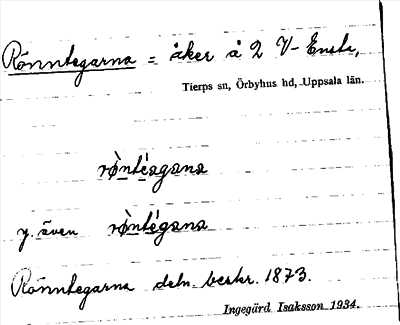 Rönntegarna = åker å 2 V- Ensta,
Tierps sn, Örbyhus hd, Uppsala län.
rø̀nté̀agana
y. även rø̀nté̀gana
Rönntegarna deln. beskr. 1873.
Ingegärd Isaksson 1934.